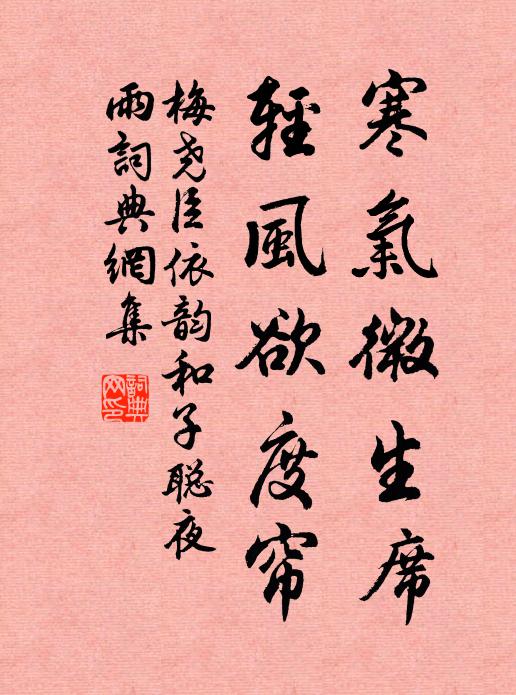 寒氣微生席
輕風欲度帘
梅尧臣依韵和子聪夜
雨詞典網集
詞典网印